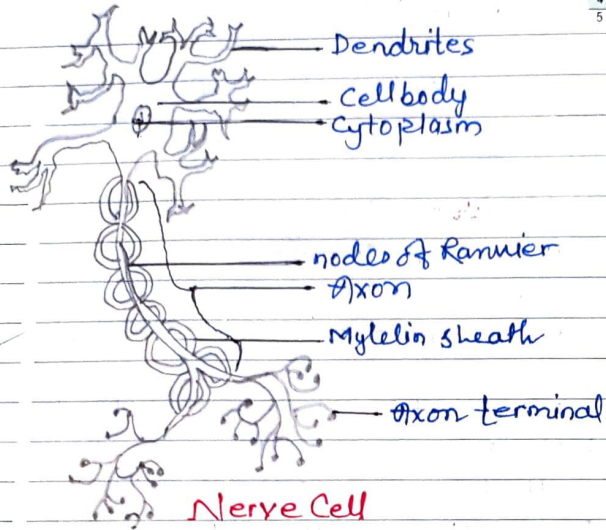 4
5
Dendrites
Cellbody
Cytoplasm
nodes of Rannier
Axon
Mylelin sheath
Axon terminal
Nerve Cell